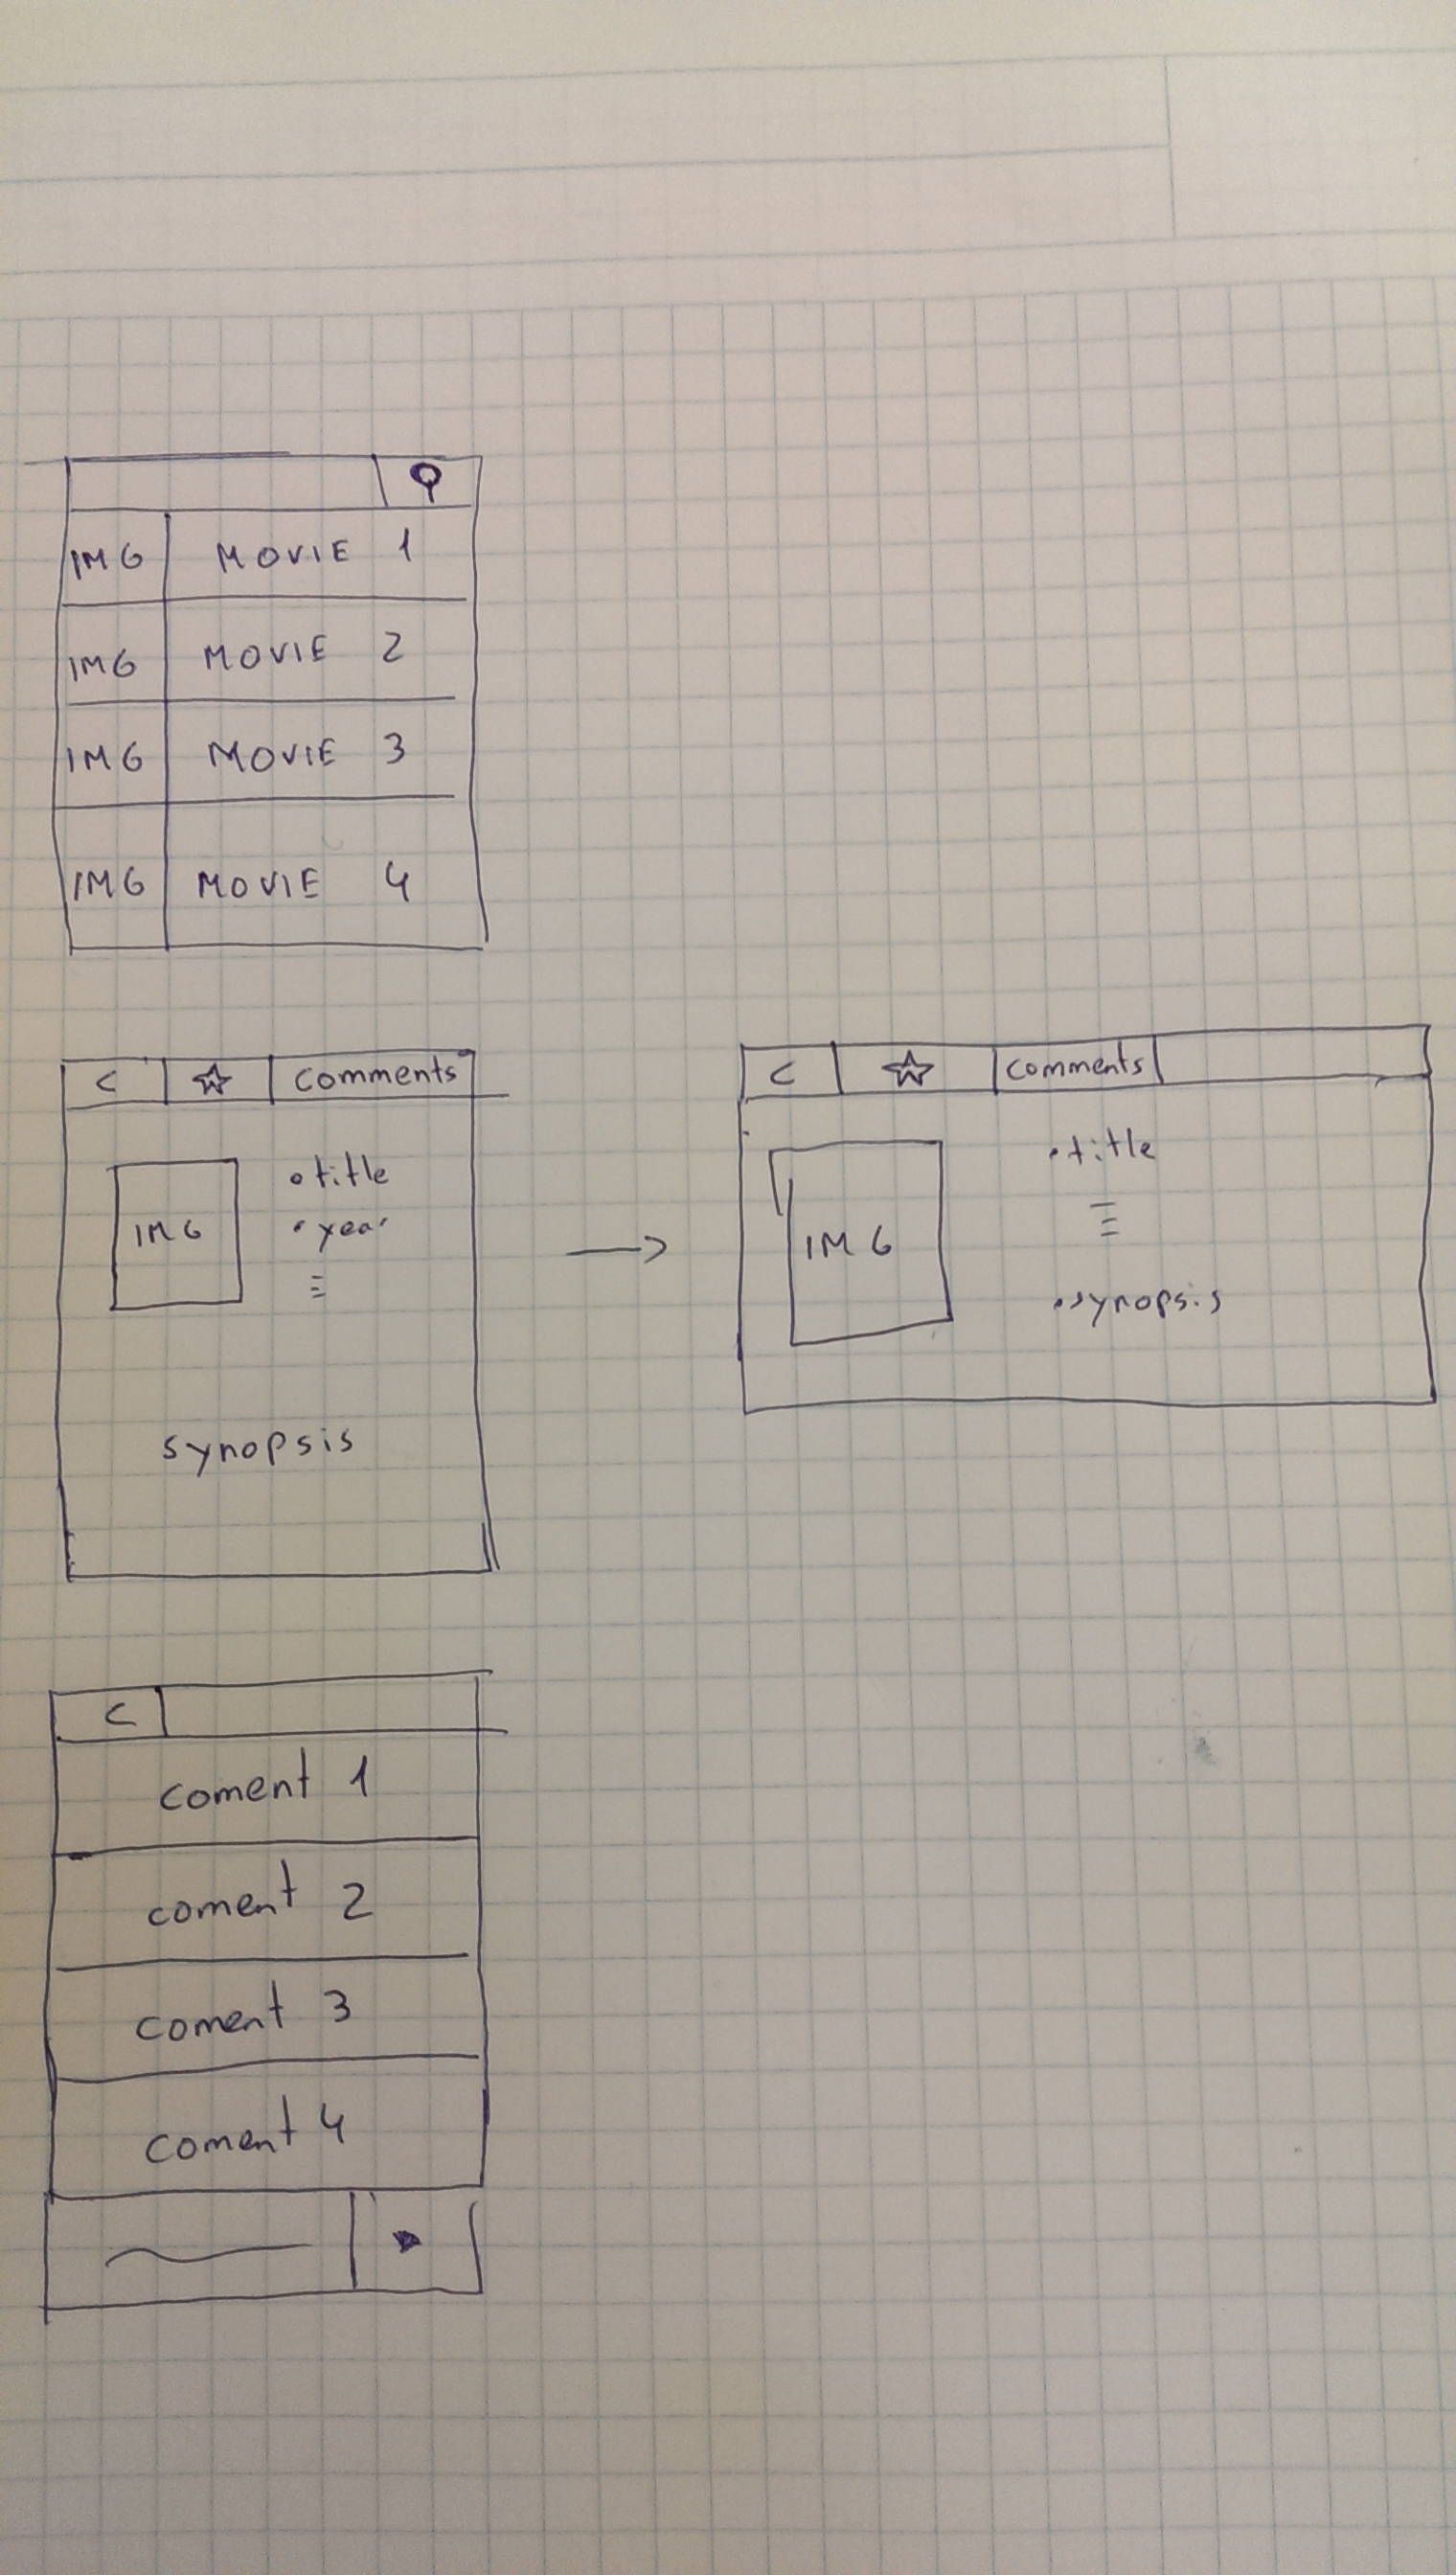 IMG MOVIE 1
IMG MOVIE 2
IMG MOVIE 3
IMG MOVIE 4
< ☆ comments
IMG
• title
• year
synopsis
< ☆ comments
IMG
• title
• synopsis
<
coment 1
coment 2
coment 3
coment 4